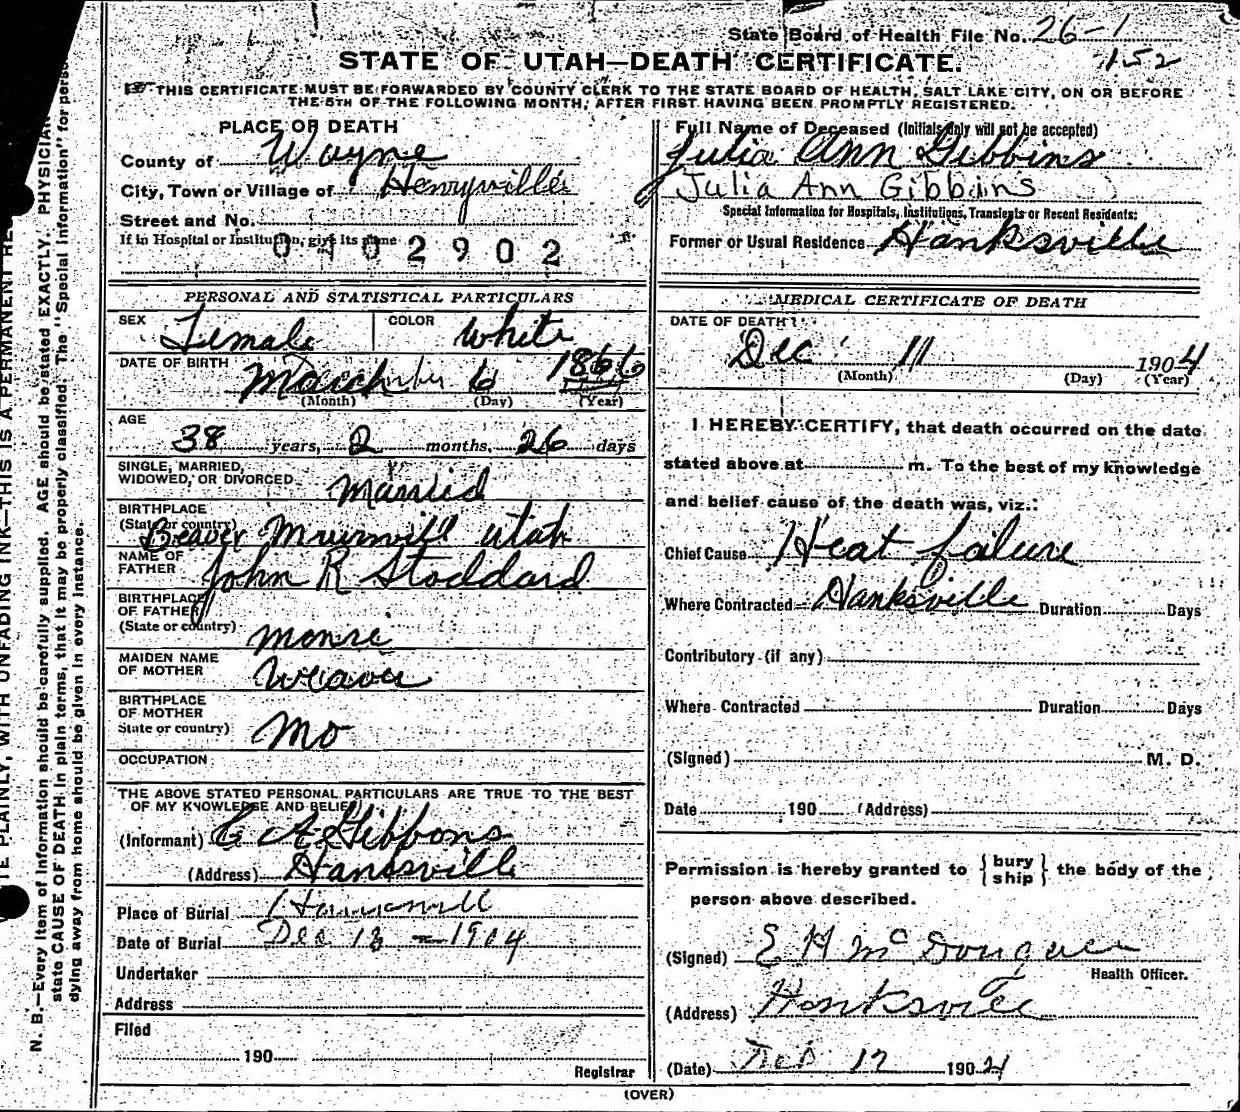 State Board of Health File No. 26-1
152
STATE OF UTAH—DEATH CERTIFICATE.
THIS CERTIFICATE MUST BE FORWARDED BY COUNTY CLERK TO THE STATE BOARD OF HEALTH, SALT LAKE CITY, ON OR BEFORE
THE 5TH OF THE FOLLOWING MONTH, AFTER FIRST HAVING BEEN PROMPTLY REGISTERED.
PLACE OF DEATH
County of Wayne
City, Town or Village of Henryville
Street and No.
If in Hospital or Institution, give its name
0402902
Full Name of Deceased (Initials only will not be accepted)
Julia Ann Gibbins
Julia Ann Gibbins
Special Information for Hospitals, Institutions, Transients or Recent Residents:
Former or Usual Residence Hanksville
PERSONAL AND STATISTICAL PARTICULARS
SEX Female COLOR White
DATE OF BIRTH March 6 1866
(Month) (Day) (Year)
AGE
38 years, 2 months, 26 days
SINGLE, MARRIED,
WIDOWED, OR DIVORCED Married
BIRTHPLACE
(State or country)
Beaver Utah
NAME OF
FATHER John R Stoddard
BIRTHPLACE
OF FATHER
(State or country)
MAIDEN NAME
OF MOTHER Weaver
BIRTHPLACE
OF MOTHER
State or country) Mo
OCCUPATION
THE ABOVE STATED PERSONAL PARTICULARS ARE TRUE TO THE BEST
OF MY KNOWLEDGE AND BELIEF
(Informant) A Gibbons
(Address) Hanksville
Place of Burial
Date of Burial Dec 13 - 1904
Undertaker
Address
Filed
190
Registrar
MEDICAL CERTIFICATE OF DEATH
DATE OF DEATH
Dec 11 1904
(Month) (Day) (Year)
I HEREBY CERTIFY, that death occurred on the date
stated above at m. To the best of my knowledge
and belief cause of the death was, viz.:
Chief Cause Heat falure
Where Contracted Hanksville Duration Days
Contributory (if any)
Where Contracted Duration Days
(Signed) M. D.
Date 190 (Address)
Permission is hereby granted to { bury ship } the body of the
person above described.
(Signed) E H
Health Officer.
(Address) Hanksville
(Date) 12 1904
(OVER)
N. B.—Every item of information should be carefully supplied. AGE should be stated EXACTLY. PHYSICIAN
state CAUSE OF DEATH in plain terms, that it may be properly classified. The "Special Information" for pers
dying away from home should be given in every instance.
TE PLAINLY, WITH UNFADING INK—THIS IS A PERMANENT RE